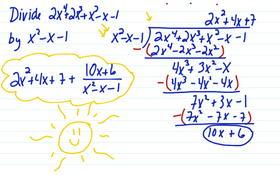 Divide 2x⁴+2x³+x²-x-1
by x²-x-1
2x²+4x+7 + (10x+6)/(x²-x-1)
2x²+4x+7
x²-x-1 ) 2x⁴+2x³+x²-x-1
-(2x⁴-2x³-2x²)
4x³+3x²-x
-(4x³-4x²-4x)
7x²+3x-1
-(7x²-7x-7)
10x+6